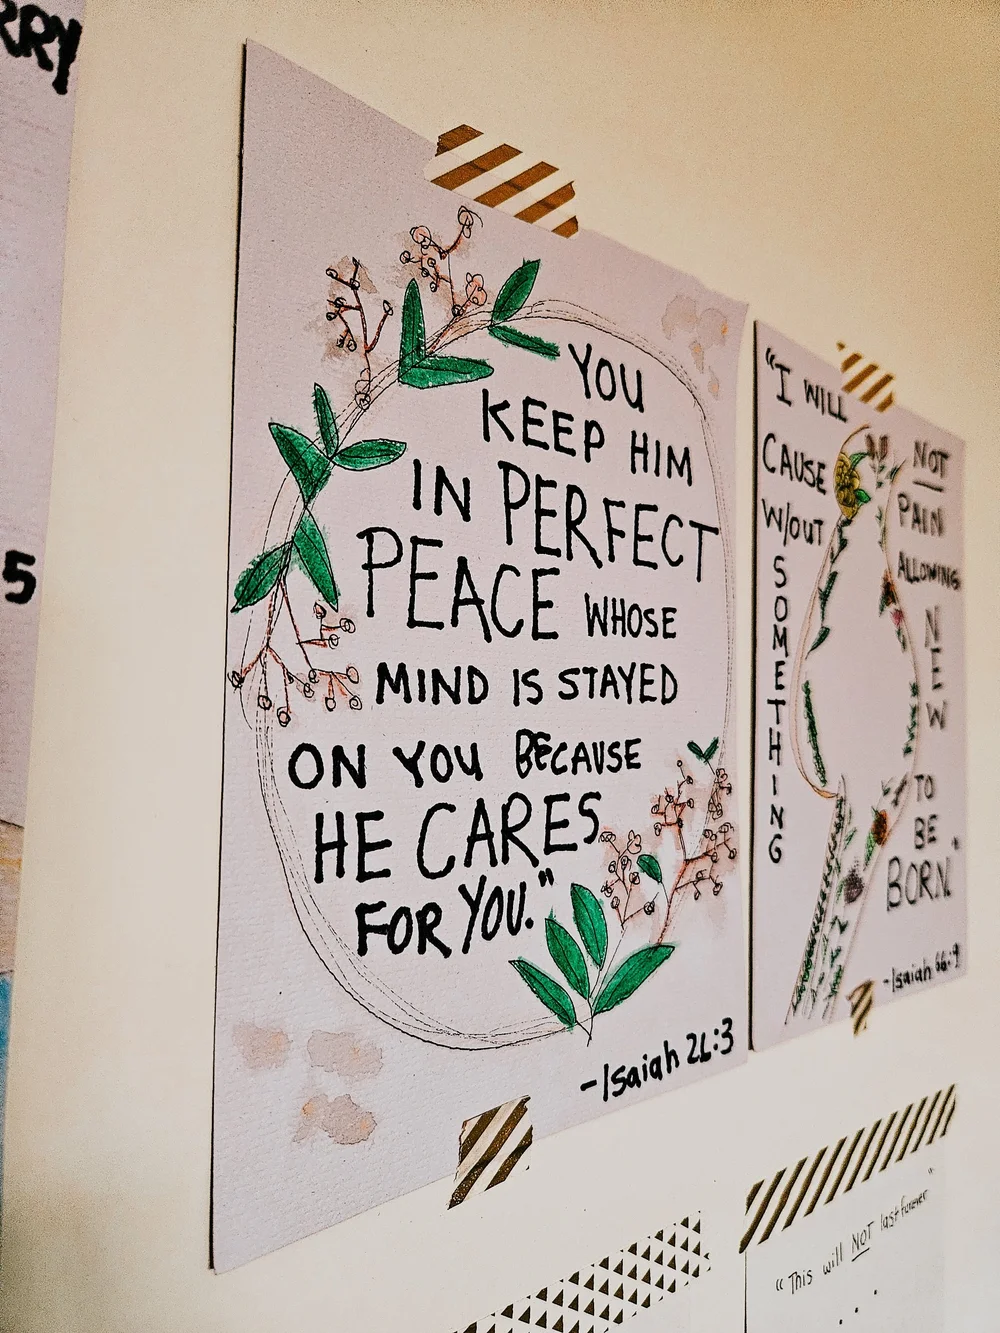 RRY
5
YOU
KEEP HIM
IN PERFECT
PEACE WHOSE
MIND IS STAYED
ON YOU BECAUSE
HE CARES
FOR YOU."
-Isaiah 26:3
"I WILL
CAUSE
W/OUT
SOMETHING
NOT
PAIN
ALLOWING
NEW
TO
BE
BORN."
-Isaiah 66:9
"This will NOT last forever"